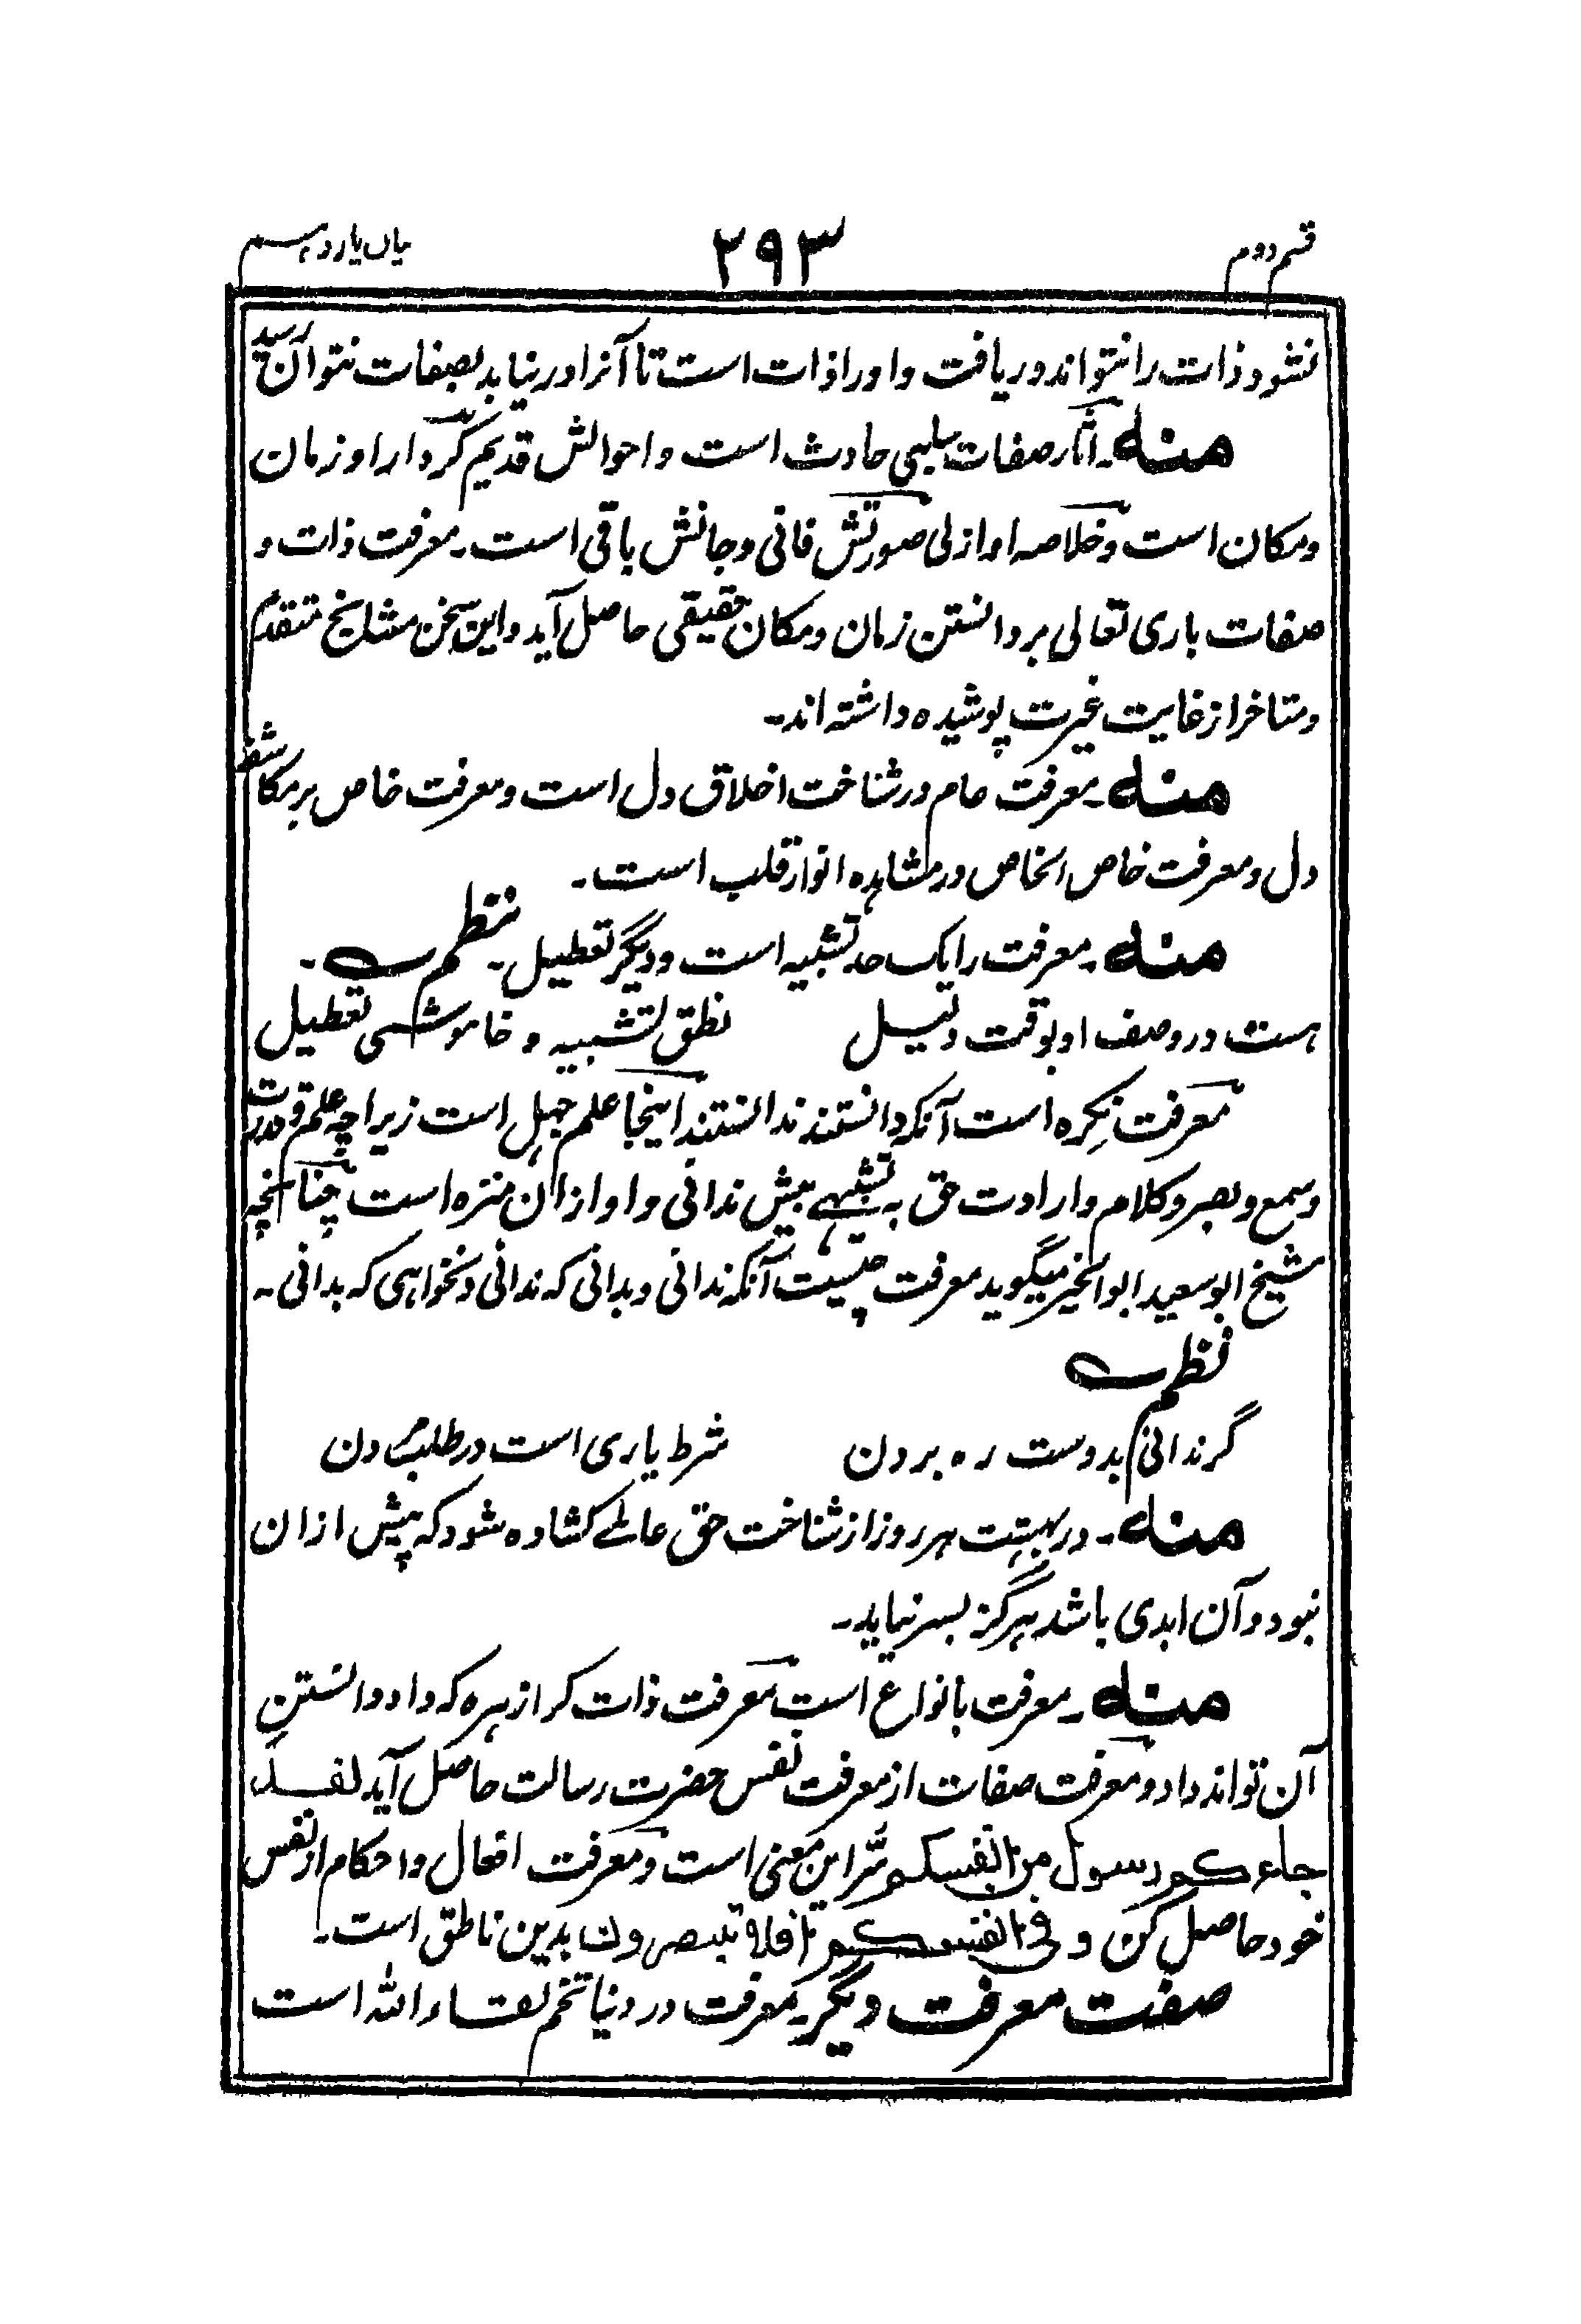 قسم دوم ۲۹۳ بیان یازدہم
نشود ذات را نتواند دریافت و او را ذات است تا آنرا در نیابد بصفات نتوان رسید
منه۔ آثار صفات سلبی حادث است و احوالش قدیم گردد او را زمان
و مکان است و خلاصه او ازلی صورتش فانی و جانش باقی است۔ معرفت ذات و
صفات باری تعالی بر دانستن زمان و مکان حقیقی حاصل آید و این سخن مشایخ متقدم
و متاخر از غایت غیرت پوشیده داشته اند۔
منه۔ معرفت عام در شناخت اخلاق دل است و معرفت خاص بر مکاشفه
دل و معرفت خاص الخاص در مشاهده انوار قلب است۔
منه۔ معرفت را یک حد تشبیه است و دیگر تعطیل۔ نظم۔
هست در وصف او بوقت دلیل نطق تشبیه و خاموشی تعطیل
معرفت نکره است آنکه دانستند ندانستند اینجا علم جهل است زیراچه علم و قدرت
و سمع و بصر و کلام و ارادت حق به تشبیهے بیش ندانی و او ازان منزه است چنانچه
شیخ ابو سعید ابو الخیر میگوید معرفت چیست آنکه ندانی و بدانی که ندانی و نخواهی که بدانی۔
نظم
گر ندانی بدوست ره بردن شرط یاری است در طلب مردن
منه۔ در بهشت هر روز از شناخت حق عالمے کشاده شود که پیش ازان
نبود و آن ابدی باشد هرگز بسر نیاید۔
منه۔ معرفت بانواع است معرفت ذات کرا زهره که داد دانستن
آن تواند داد و معرفت صفات از معرفت نفس حضرت رسالت حاصل آید لقد
جاءکم رسول من انفسکم سّر این معنی است و معرفت افعال و احکام از نفس
خود حاصل کن و فی انفسکم افلا تبصرون بدین ناطق است۔
صفت معرفت دیگر۔ معرفت در دنیا تخم لقاء الله است